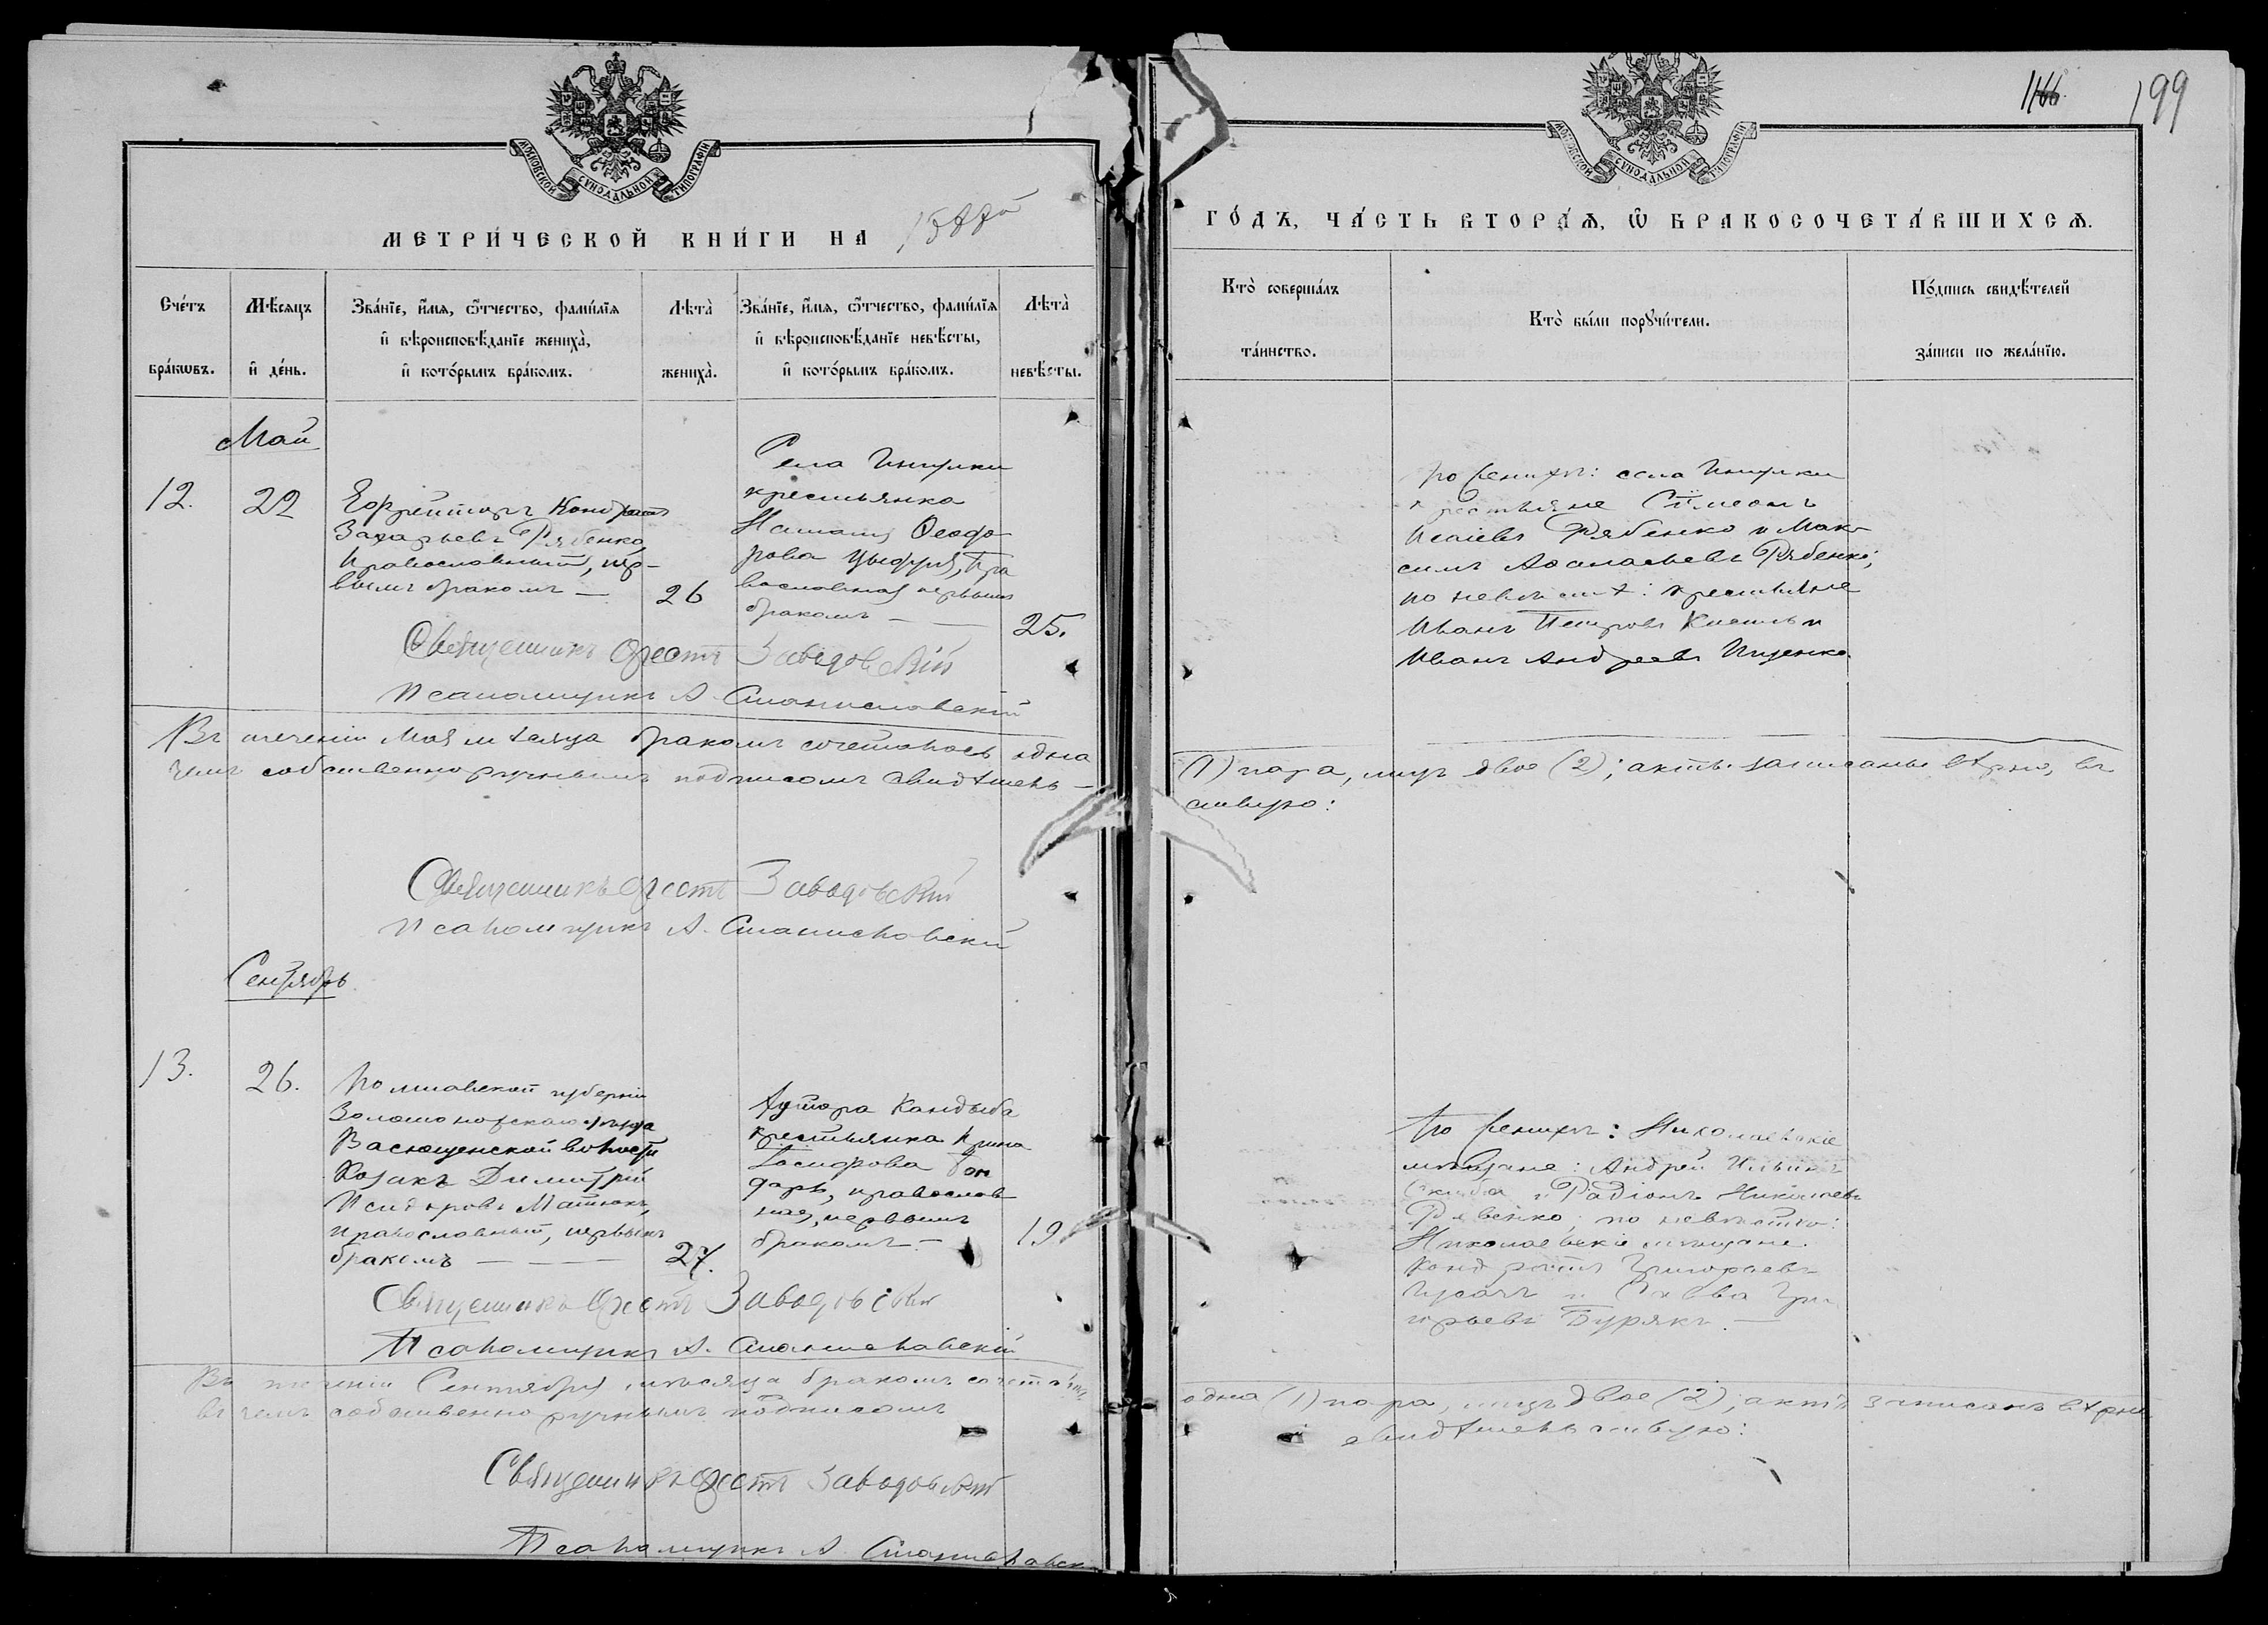 МОСКОВСКОЙ СѴНОДАЛЬНОЙ ТИПОГРАФІИ
МЕТРИ́ЧЕСКОЙ КНИ́ГИ НА
Сче́тъ
бра́кѡвъ.
Мѣ́сяцъ
и҆ де́нь.
Зва́нїе, и҆́мѧ, ѻ҆́тчество, фами́лїѧ
и҆ вѣроисповѣ́данїе жениха̀,
и҆ кото́рымъ бра́комъ.
Лѣта̀
жениха̀.
Зва́нїе, и҆́мѧ, ѻ҆́тчество, фами́лїѧ
и҆ вѣроисповѣ́данїе невѣ́сты,
и҆ кото́рымъ бра́комъ.
Лѣта̀
невѣ́сты.
Май
12.
22
Ефрейторъ Кондратъ
Захарьевъ Рябенко,
православный, пер-
вымъ бракомъ —
26
Села
крестьянка
Наталія Ѳеодо-
рова Цыфуя, пра
вославная первымъ
бракомъ — —
25.
Священникъ Орестъ Заводовскій
Псаломщикъ А. Станиславскій
Въ теченіи Мая мѣсяца бракомъ сочеталось одна
чемъ собственноручнымъ подписомъ свидѣтель-
Священникъ Орестъ Заводовскій
Псаломщикъ А. Станиславскій
Сентябрь
13.
26.
Полтавской губерніи
Золотоношскаго уѣзда
Васютинской волости
Козакъ Димитрій
Исидоровъ Матюкъ,
православный, первымъ
бракомъ — — —
27.
Хутора Кандыба
крестьянка
Іосифова Бон
дарь, православ
ная, первымъ
бракомъ —
19
Священникъ Орестъ Заводовскій
Псаломщикъ А. Станиславскій
Въ теченіи Сентября мѣсяца бракомъ сочеталось
въ чемъ собственноручнымъ подписомъ
Священникъ Орестъ Заводовскій
Псаломщикъ А. Станиславск
166.
199
МОСКОВСКОЙ СѴНОДАЛЬНОЙ ТИПОГРАФІИ
ГО́ДЪ, ЧА́СТЬ ВТОРА́Ѧ, Ѡ҆ БРАКОСОЧЕТА́ВШИХСѦ.
Кто̀ соверша́лъ
та́инство.
Кто̀ бы́ли порꙋчи́тели.
По́дпись свидѣ́телей
за́писи по жела́нїю.
По женихѣ: села
крестьяне Симеонъ
Исаіевъ Рябенко и Мак-
симъ Аѳанасьевъ Рябенко;
по невѣстѣ: крестьяне
Иванъ Петровъ и
Иванъ Андреевъ Ищенко.
(1) пара, лицъ двое (2); актъ записанъ вѣрно, въ
ствую:
По женихѣ: Николаевскіе
мѣщане: Андрей Ильинъ
Скиба и Радіонъ Николаевъ
Рѣвенко; по невѣстѣ:
Николаевскіе мѣщане
Кондратъ Григорьевъ
Гусачъ и Савва Гри
горьевъ Бурякъ. —
одна (1) пара, лицъ двое (2); актъ записанъ вѣрно
свидѣтельствую: